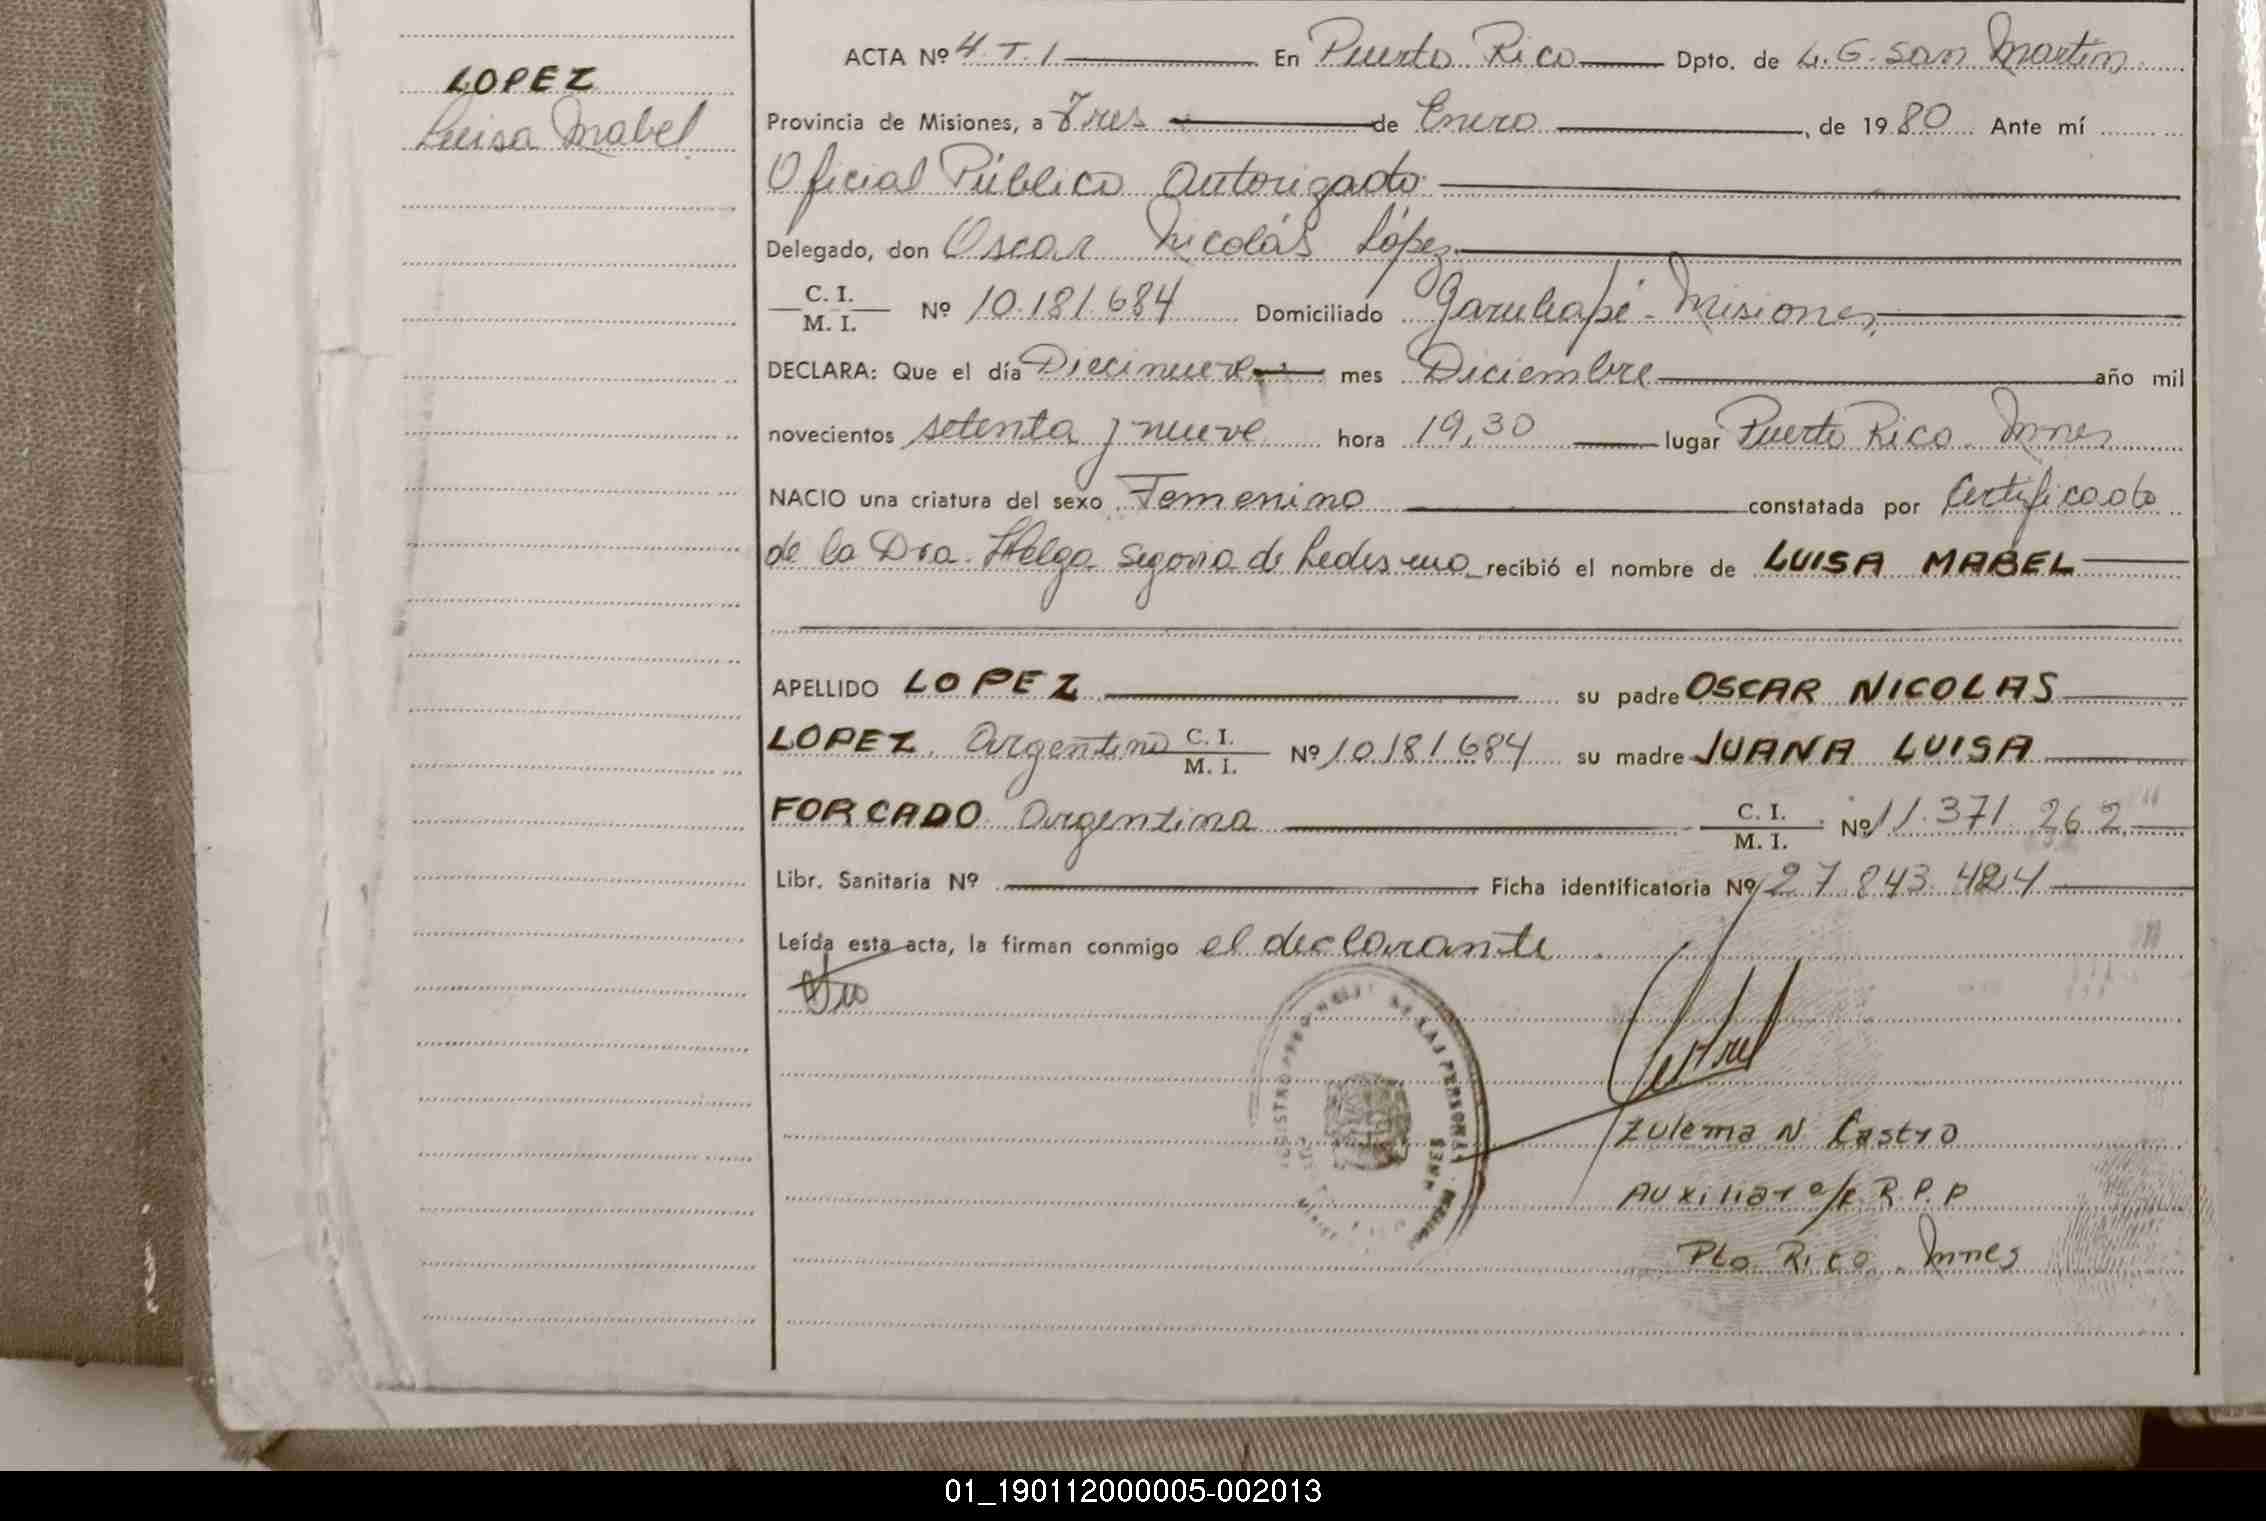 LOPEZ
Luisa Mabel
ACTA Nº 4 T. 1 En Puerto Rico Dpto. de L. G. San Martín
Provincia de Misiones, a Tres de Enero, de 1980 Ante mí
Oficial Público Autorizado
Delegado, don Oscar Nicolás López
C. I.
M. I.
Nº 10.181.684 Domiciliado Garuhapé - Misiones
DECLARA: Que el día Diecinueve mes Diciembre año mil
novecientos setenta y nueve hora 19,30 lugar Puerto Rico. Mnes
NACIO una criatura del sexo Femenino constatada por Certificado
de la Dra. Helga Segovia de Ledesma recibió el nombre de LUISA MABEL
APELLIDO LOPEZ su padre OSCAR NICOLAS
LOPEZ. Argentino C. I. M. I. Nº 10.181.684 su madre JUANA LUISA
FORCADO Argentina C. I. M. I. Nº 11.371.262
Libr. Sanitaria Nº Ficha identificatoria Nº 27.843.424
Leída esta acta, la firman conmigo el declarante
Zulema N Castro
Auxiliar a/c R.P.P
Pto Rico. Mnes
01_190112000005-002013